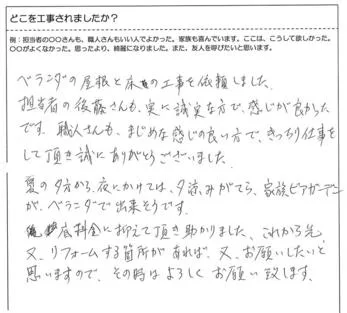 どこを工事されましたか？
例：担当者の〇〇さんも、職人さんもいい人でよかった。家族も喜んでいます。ここは、こうして欲しかった。
〇〇がよくなかった。思ったより、綺麗になりました。また、友人を呼びたいと思います。
ベランダの屋根と床の工事を依頼しました。
担当者の後藤さんも、実に誠実な方で、感じが良かった
です。職人さんも、まじめな感じの良い方で、きっちり仕事を
して頂き誠にありがとうございました。
夏の夕方から、夜にかけては、夕涼みがてら、家族ビアガーデン
が、ベランダで出来そうです。
底料金に抑えて頂き助かりました。これから先、
又、リフォームする箇所があれば、又、お願いしたいと
思いますので、その時はよろしくお願い致します。